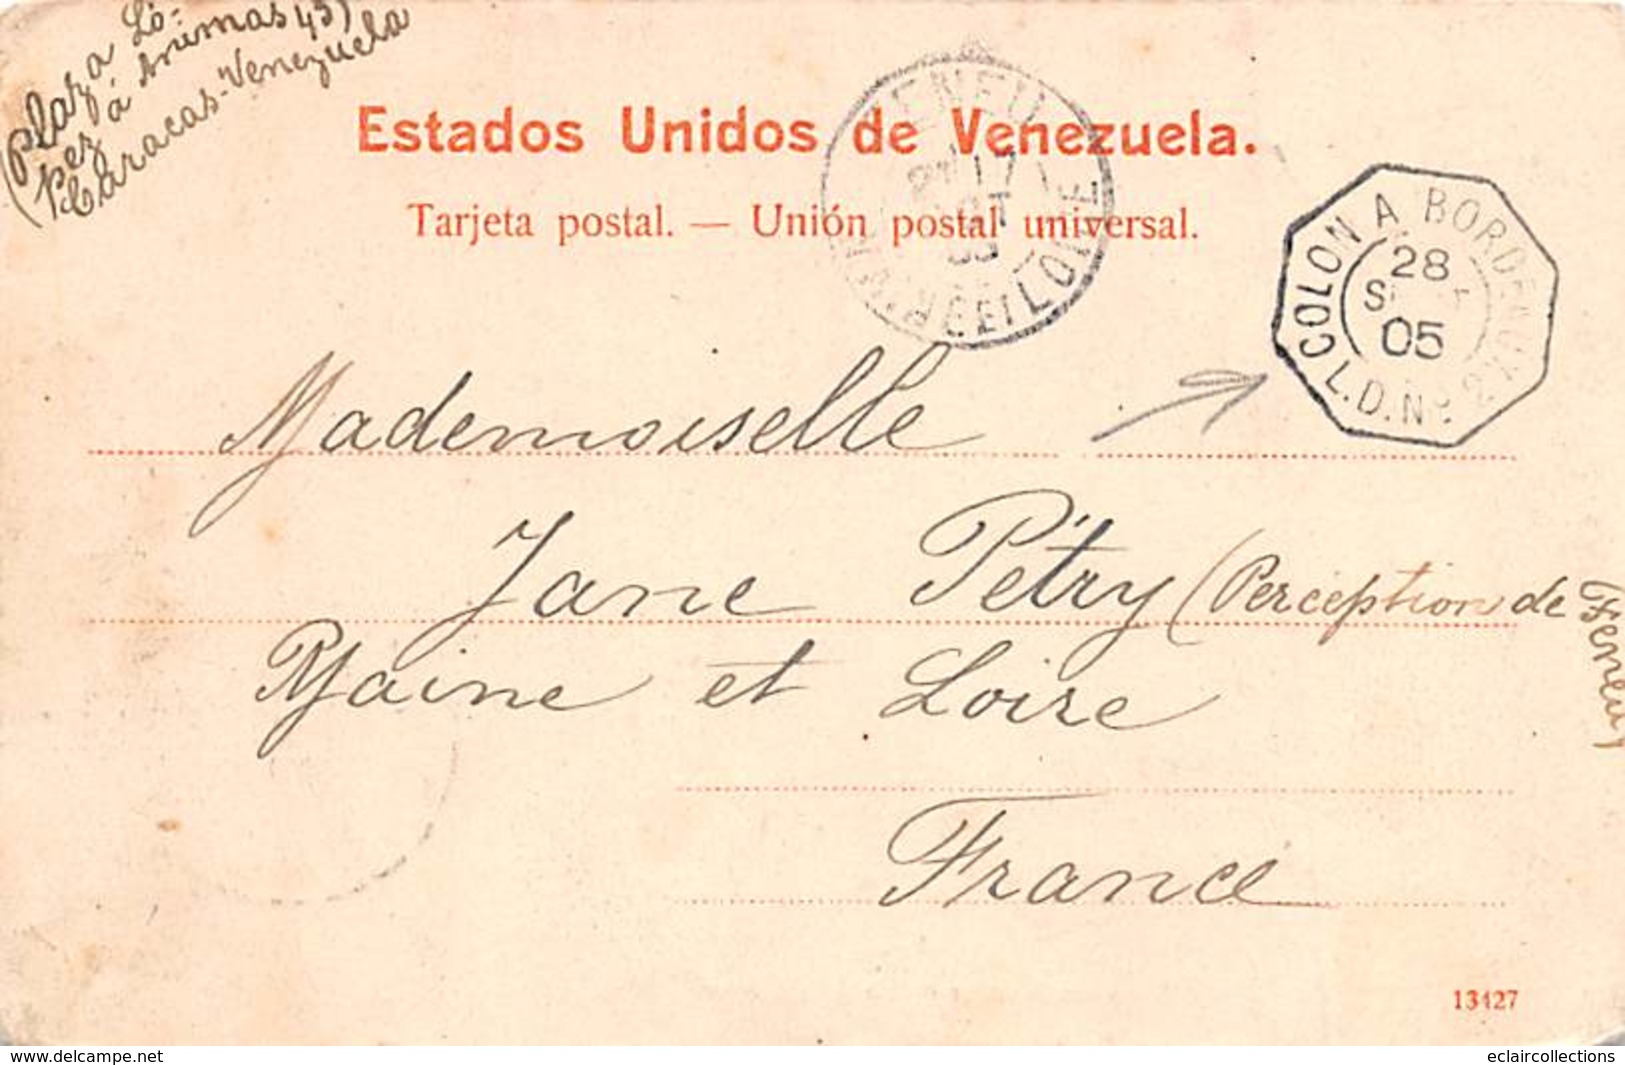 (Plaza Ló-
pez á Animas 43)
(Caracas-Venezuela
Estados Unidos de Venezuela.
Tarjeta postal. — Unión postal universal.
FENEU
17
MAINE ET LOIRE
COLON A BORDEAUX
28
SEPT
05
L.D.Nº2
Mademoiselle
Jane Pétry (Perception de Feneu)
Maine et Loire
France
13427
www.delcampe.net
eclaircollections